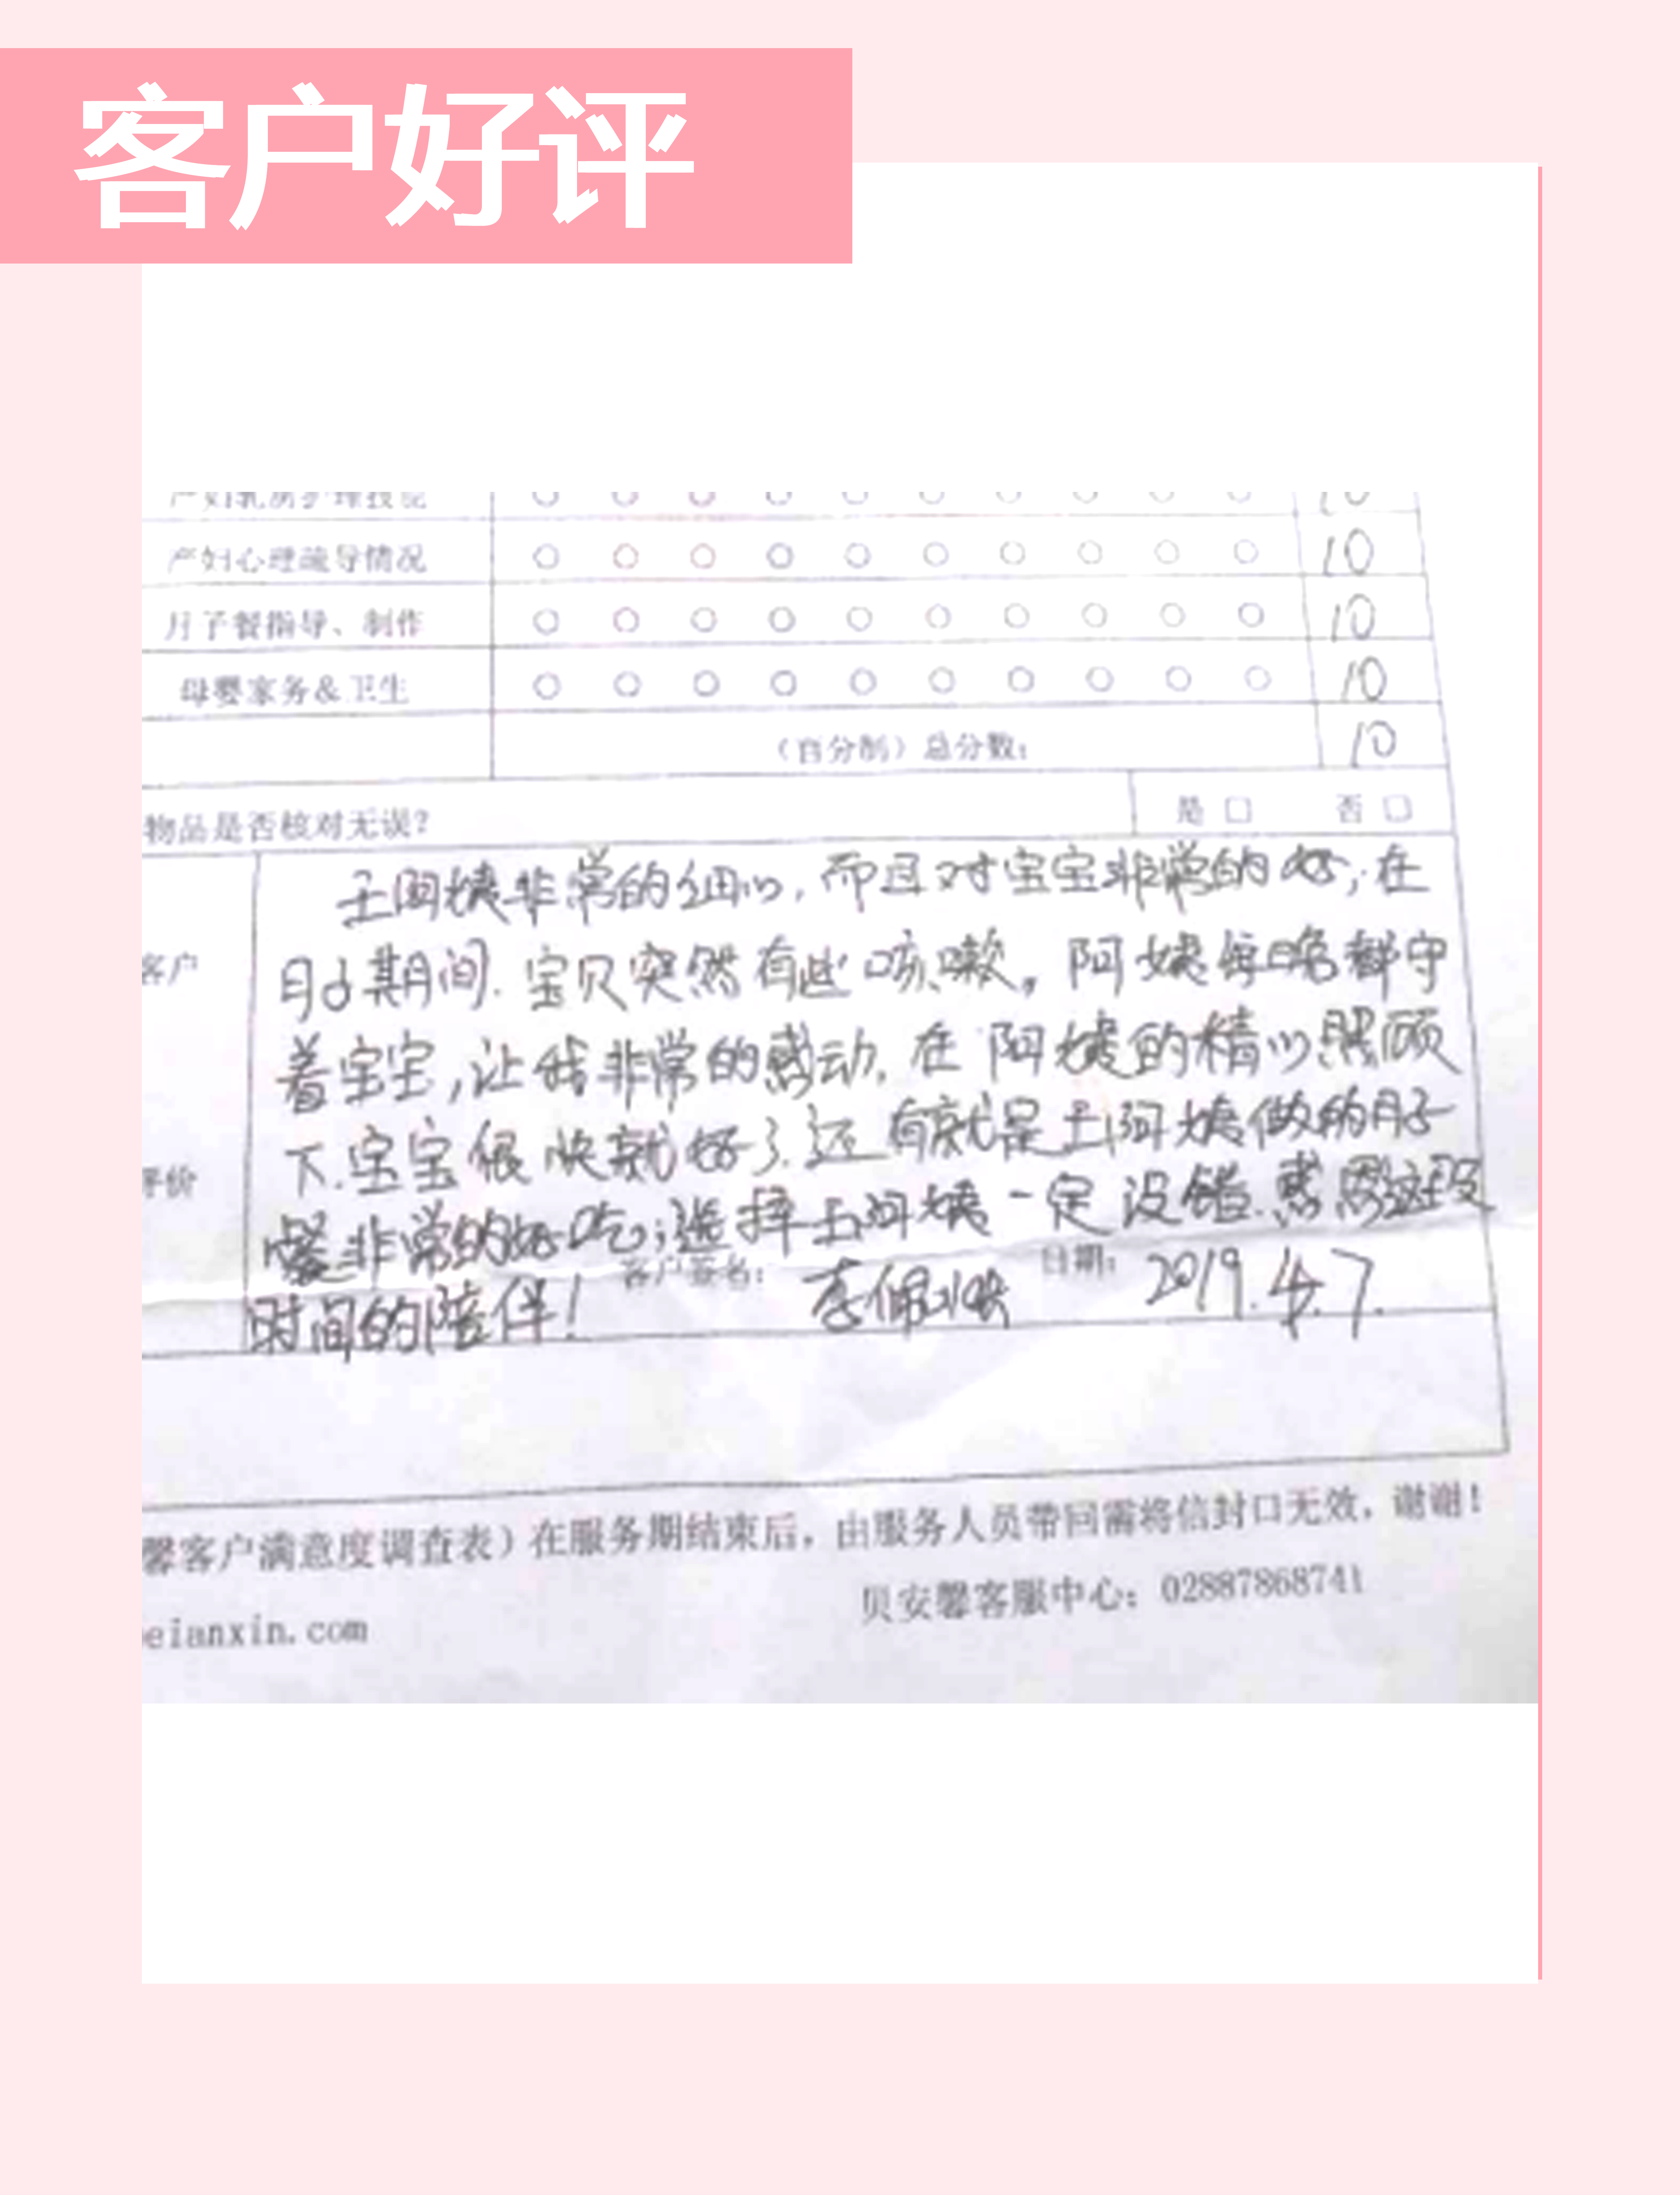 客户好评
产妇乳房护理技能 10
产妇心理疏导情况 10
月子餐指导、制作 10
母婴家务&卫生 10
（百分制）总分数： 10
物品是否核对无误？ 是 □ 否 □
王阿姨非常的细心，而且对宝宝非常的好，在
客户
月子期间.宝贝突然有些咳嗽，阿姨每晚都守
着宝宝，让我非常的感动.在阿姨的精心照顾
下.宝宝很快就好了.还有就是王阿姨做的月子
评价
餐非常的好吃；选择王阿姨一定没错.感恩这段
客户签名： 李佩 日期： 2019.4.7.
时间的陪伴！
馨客户满意度调查表）在服务期结束后，由服务人员带回需将信封口无效，谢谢！
贝安馨客服中心：02887868741
eianxin.com